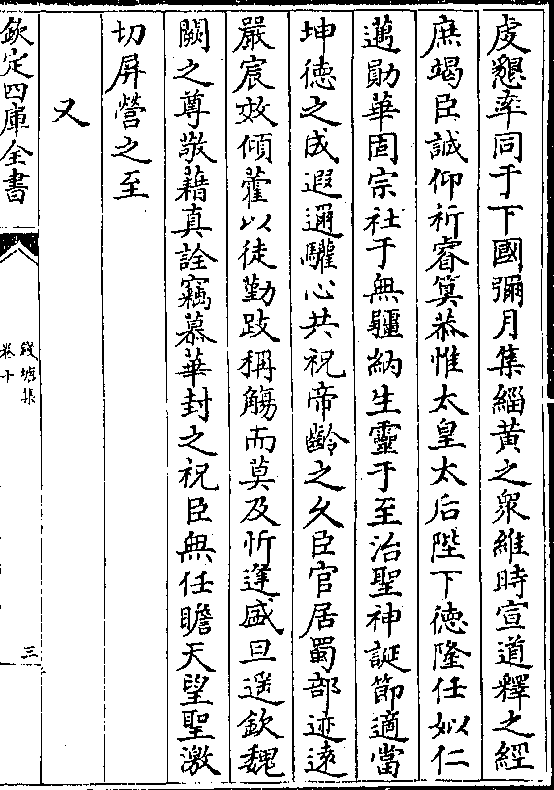 虔懇率同于下國彌月集緇黃之衆維時宣道釋之經
庶竭臣誠仰祈睿筭恭惟太皇太后陛下德隆任姒仁
邁勛華固宗社于無疆納生靈于至治聖神誕節適當
坤德之成遐邇驩心共祝帝齡之久臣官居蜀部迹遠
嚴宸效傾藿以徒勤跂稱觴而莫及忻逢盛旦遥欽魏
闕之尊敬藉真詮竊慕華封之祝臣無任瞻天望聖激
切屏營之至
又
欽定四庫全書
錢塘集
卷十
三